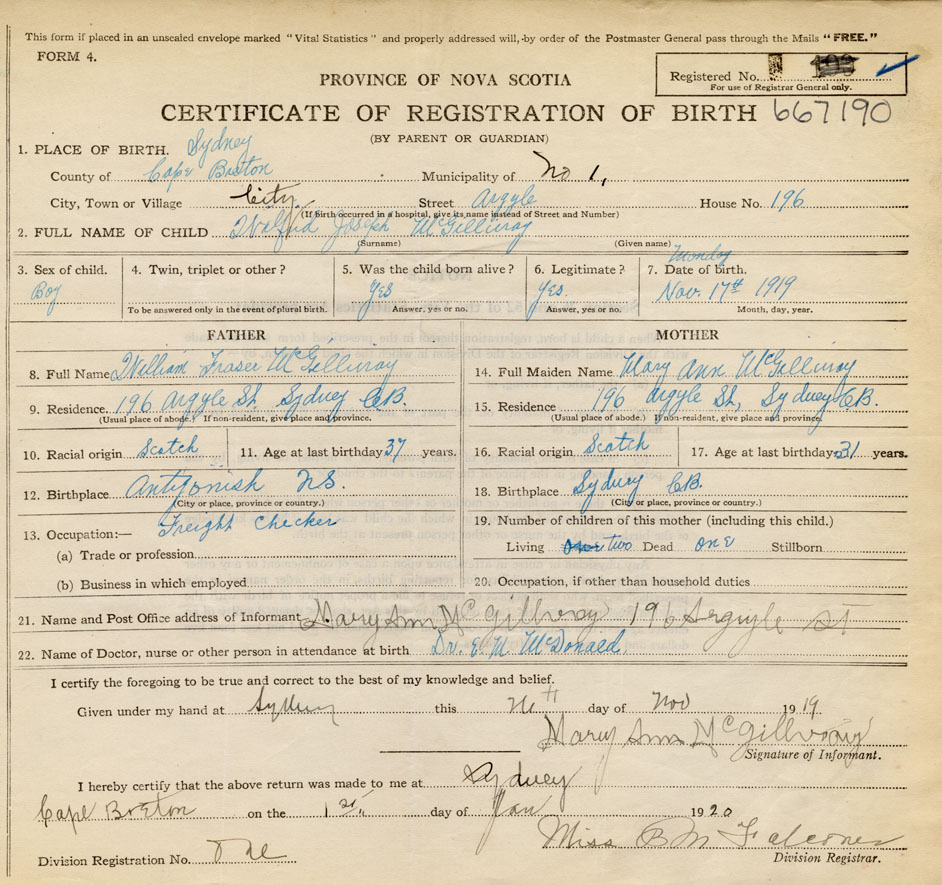 This form if placed in an unsealed envelope marked "Vital Statistics" and properly addressed will, by order of the Postmaster General pass through the Mails "FREE."
FORM 4.
Registered No.
For use of Registrar General only.
PROVINCE OF NOVA SCOTIA
CERTIFICATE OF REGISTRATION OF BIRTH 667190
(BY PARENT OR GUARDIAN)
1. PLACE OF BIRTH. Sydney
County of Cape Breton Municipality of No 1,
City, Town or Village City Street Argyle House No. 196
(If birth occurred in a hospital, give its name instead of Street and Number)
2. FULL NAME OF CHILD Wolfrid Joseph McGillivray
(Surname) (Given name)
3. Sex of child. 4. Twin, triplet or other? 5. Was the child born alive? 6. Legitimate? 7. Date of birth. Monday
Boy Yes Yes. Nov. 17th 1919
To be answered only in the event of plural birth. Answer, yes or no. Answer, yes or no. Month, day, year.
FATHER MOTHER
8. Full Name William Fraser McGillivray 14. Full Maiden Name Mary Ann McGillivray
9. Residence. 196 Argyle St. Sydney C.B. 15. Residence 196 Argyle St, Sydney C.B.
(Usual place of abode.) If non-resident, give place and province. (Usual place of abode.) If non-resident, give place and province.
10. Racial origin Scotch 11. Age at last birthday 37 years. 16. Racial origin Scotch 17. Age at last birthday 31 years.
12. Birthplace Antigonish N.S. 18. Birthplace Sydney C.B.
(City or place, province or country.) (City or place, province or country.)
13. Occupation:— Freight Checker 19. Number of children of this mother (including this child.)
(a) Trade or profession Living one two Dead one Stillborn
(b) Business in which employed 20. Occupation, if other than household duties
21. Name and Post Office address of Informant Mary Ann McGillvray 196 Argyle St
22. Name of Doctor, nurse or other person in attendance at birth Dr. E. M. McDonald
I certify the foregoing to be true and correct to the best of my knowledge and belief.
Given under my hand at Sydney this day of Nov 1919
Mary Ann McGillvray
Signature of Informant.
I hereby certify that the above return was made to me at Sydney
Cape Breton on the 1st. day of Jan 1920
Miss B M Falconer
Division Registration No. One Division Registrar.